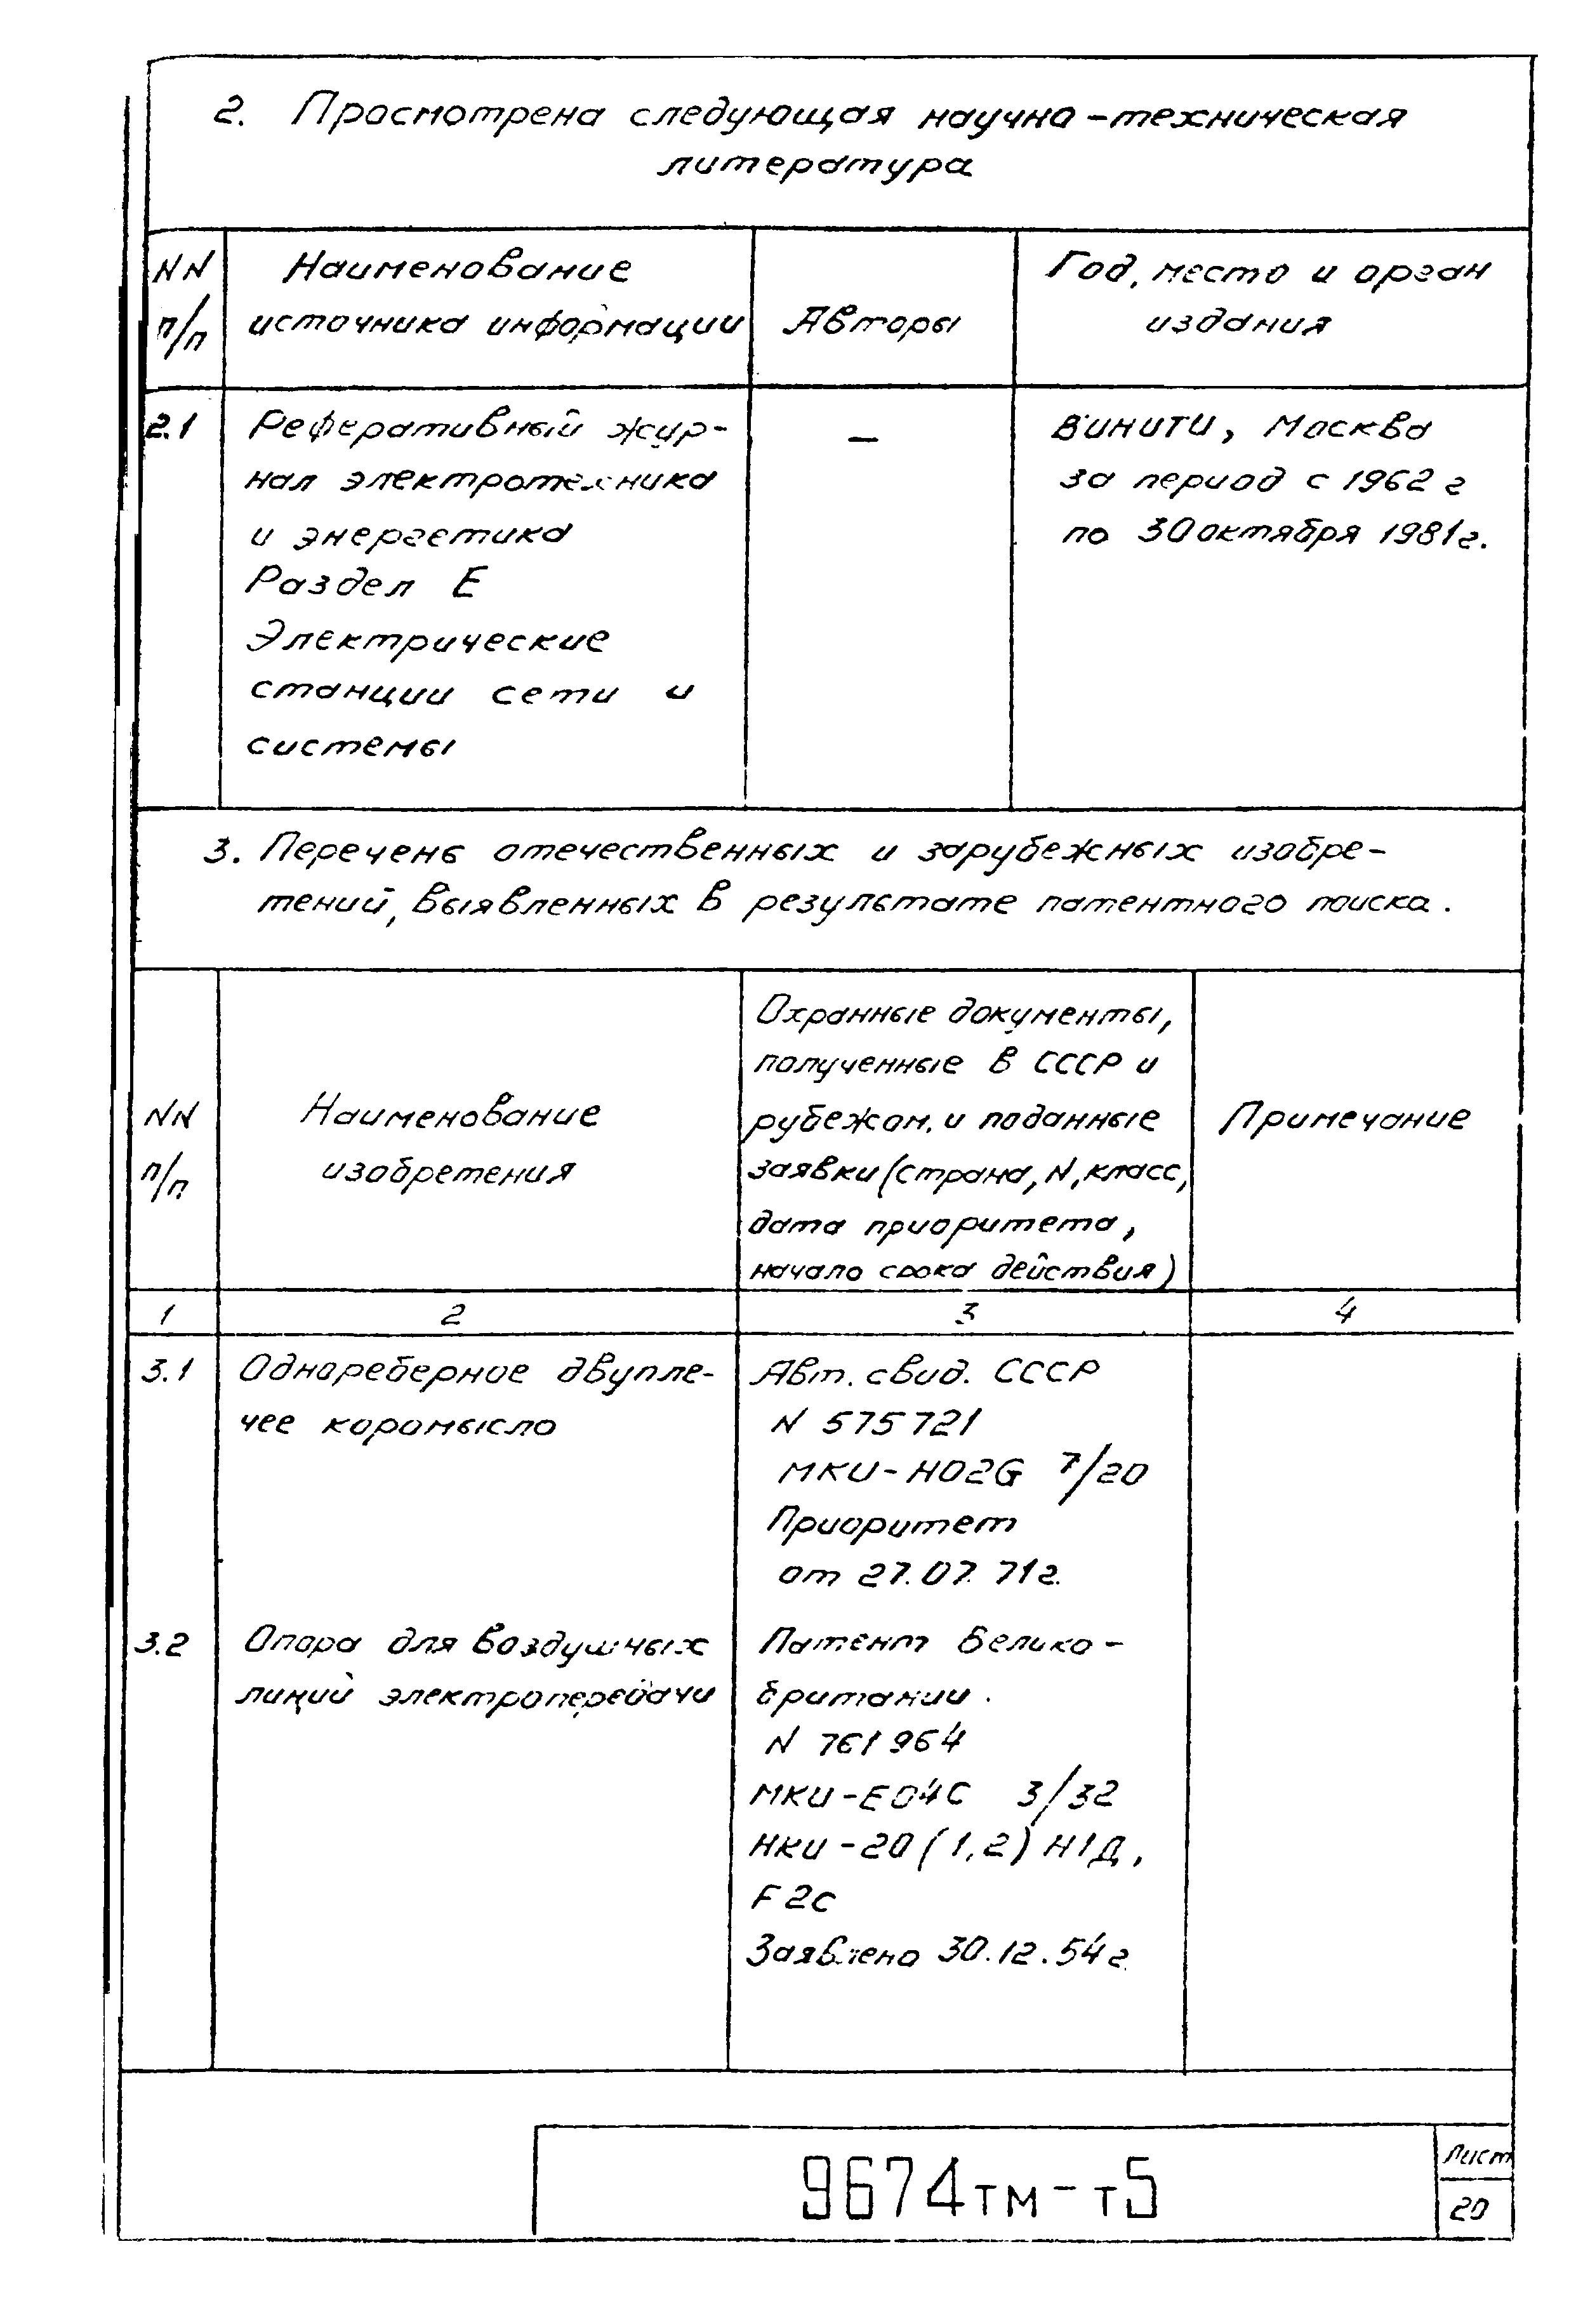 2. Просмотрена следующая научно-техническая
литература
NN
п/п
Наименование
источника информации
Авторы
Год, место и орган
издания
2.1
Реферативный жур-
нал электротехника
и энергетика
Раздел Е
Электрические
станции сети и
системы
—
ВИНИТИ, Москва
за период с 1962 г
по 30 октября 1981г.
3. Перечень отечественных и зарубежных изобре-
тений, выявленных в результате патентного поиска.
NN
п/п
Наименование
изобретения
Охранные документы,
полученные в СССР и
рубежом, и поданные
заявки (страна, N, класс,
дата приоритета,
начало срока действия)
Примечание
1
2
3
4
3.1
Однореберное двупле-
чее коромысло
Авт. свид. СССР
N 575721
МКИ-H02G 7/20
Приоритет
от 27.07.71г.
3.2
Опора для воздушных
линий электропередачи
Патент Велико-
британии.
N 761964
МКИ-E04C 3/32
НКИ-20(1,2) Н1Д,
F2c
Заявлено 30.12.54г.
9674тм-т5
Лист
20